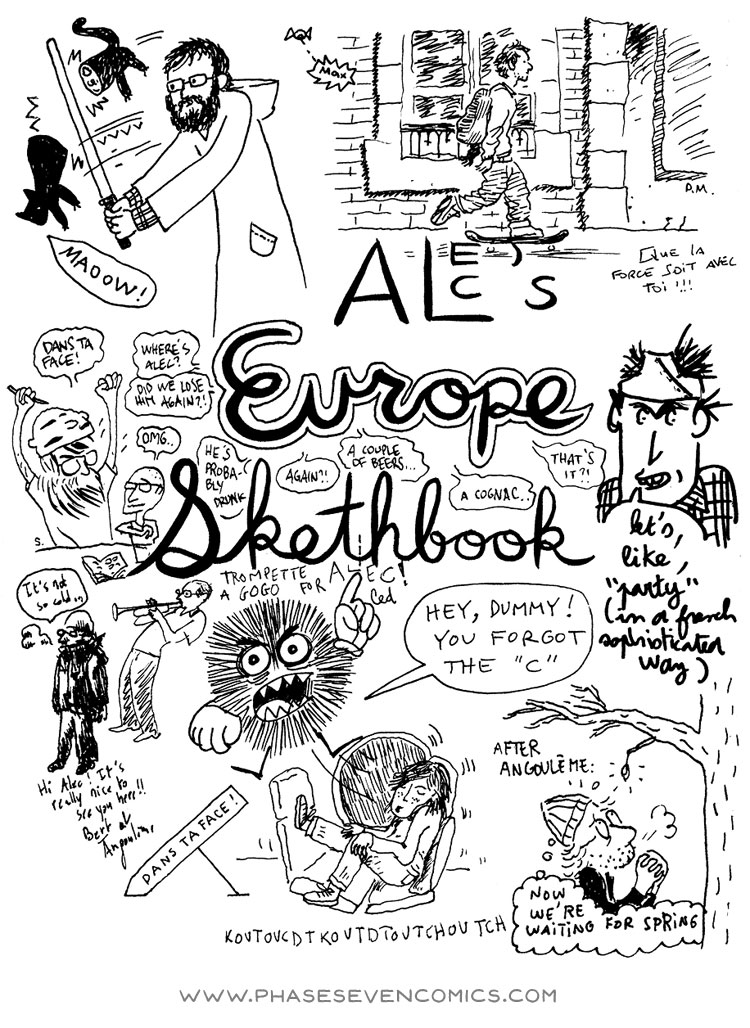 Max
MAOOW!
D.M.
QUE LA
FORCE SOIT AVEC
TOI!!!
ALEC'S
Europe
Skethbook
DANS TA
FACE!
WHERE'S
ALEC?
DID WE LOSE
HIM AGAIN?!
OMG..
HE'S
PROBA-
BLY
DRUNK
AGAIN?!
A COUPLE
OF BEERS...
A COGNAC..
THAT'S
IT?!
S.
let's,
like,
"party"
(in a french
sophisticated
way)
It's not
so cold in
TROMPETTE
A GOGO FOR ALEC!
Ced
HEY, DUMMY!
YOU FORGOT
THE "C"
Hi Alec! It's
really nice to
see you here!!
Bert at
Angoulème
DANS TA FACE!
AFTER
ANGOULÊME:
NOW
WE'RE
WAITING FOR SPRING
KOUTOUCDTKOUTDTOUTCHOUTCH
WWW.PHASESEVENCOMICS.COM